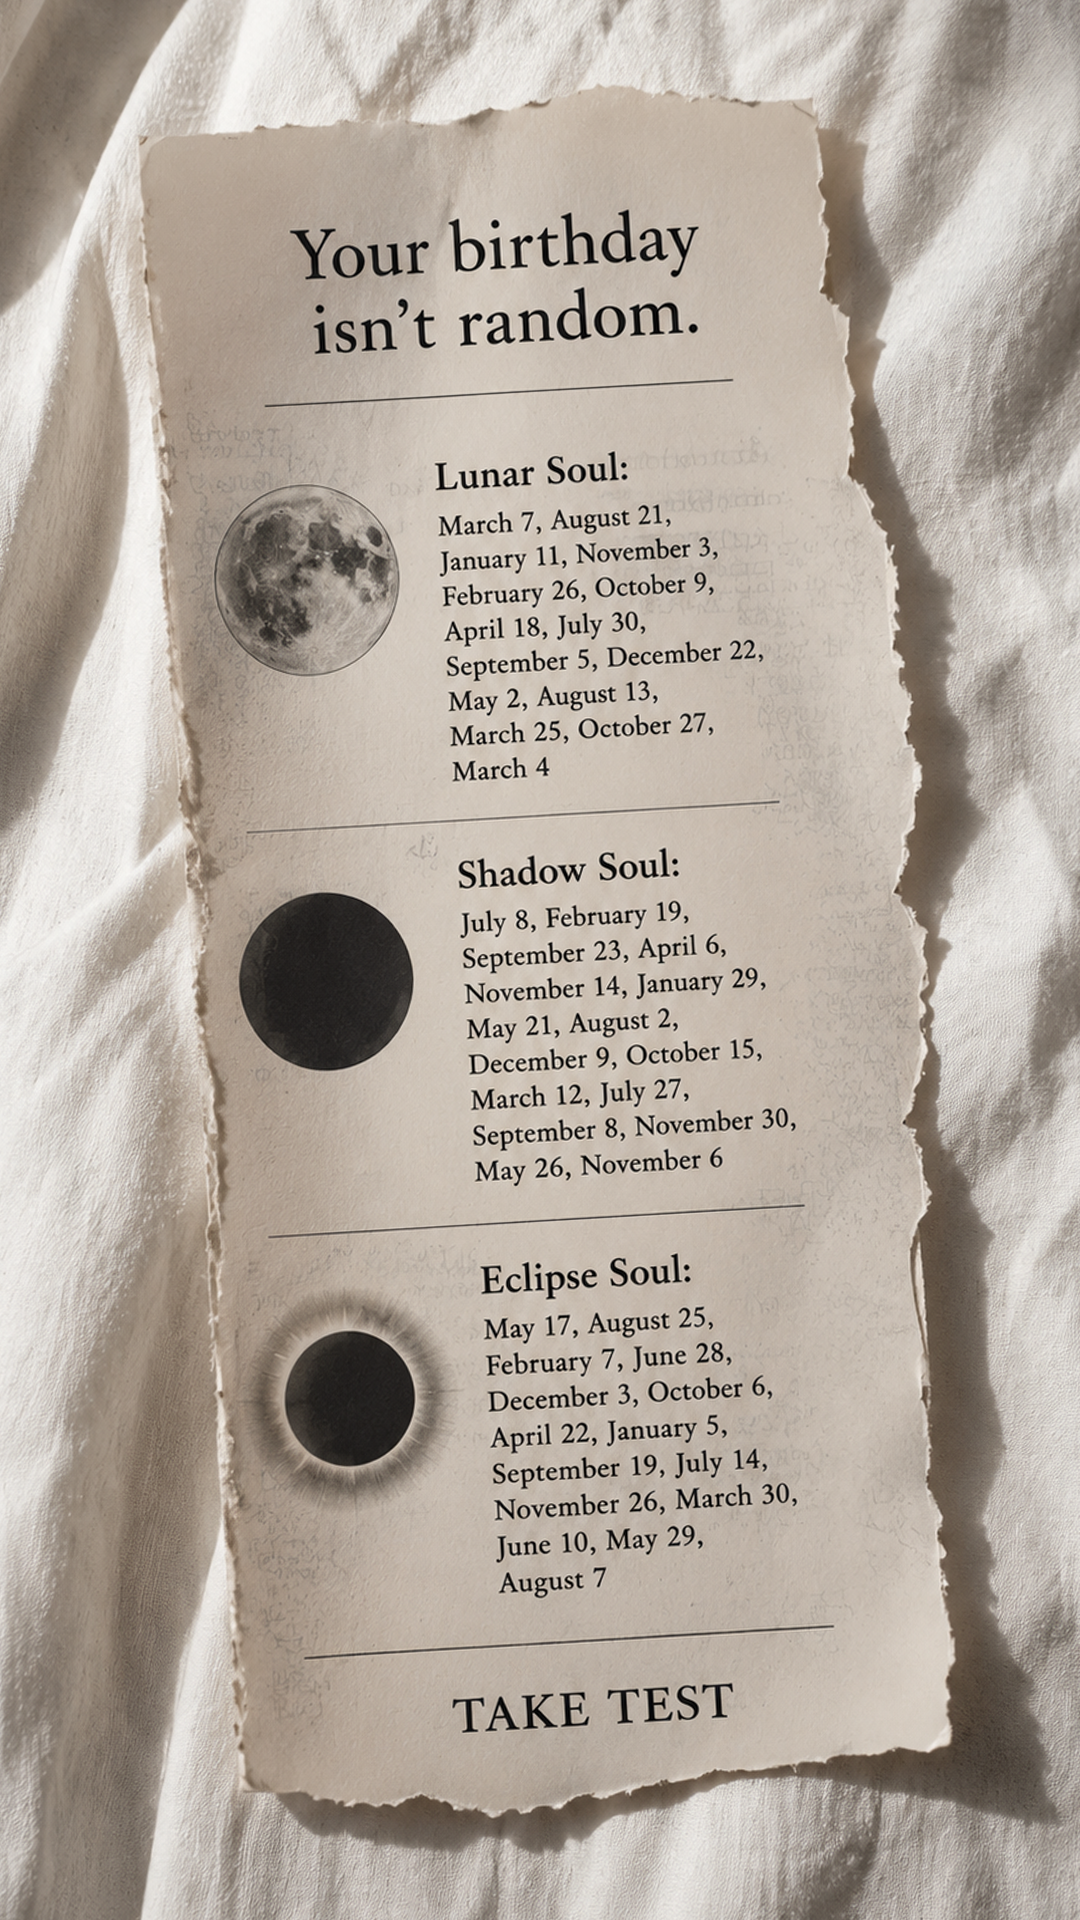 Your birthday
isn't random.
Lunar Soul:
March 7, August 21,
January 11, November 3,
February 26, October 9,
April 18, July 30,
September 5, December 22,
May 2, August 13,
March 25, October 27,
March 4
Shadow Soul:
July 8, February 19,
September 23, April 6,
November 14, January 29,
May 21, August 2,
December 9, October 15,
March 12, July 27,
September 8, November 30,
May 26, November 6
Eclipse Soul:
May 17, August 25,
February 7, June 28,
December 3, October 6,
April 22, January 5,
September 19, July 14,
November 26, March 30,
June 10, May 29,
August 7
TAKE TEST